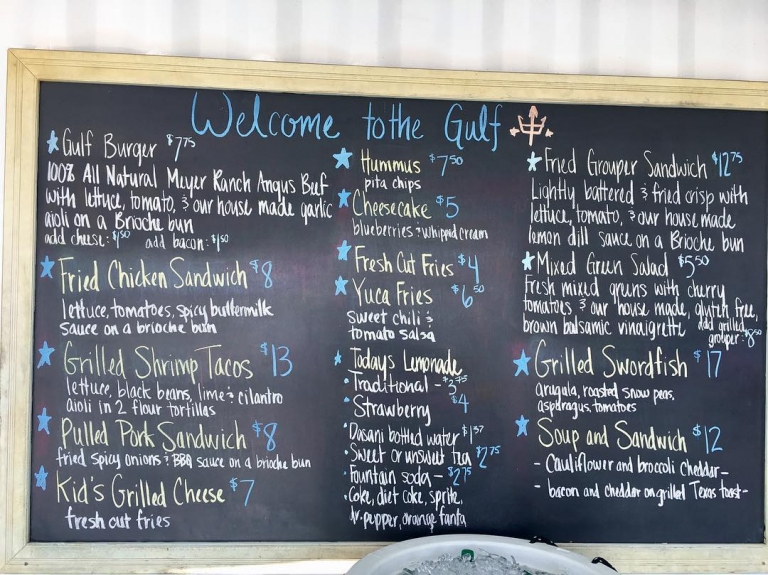 Welcome to the Gulf
Gulf Burger $7.75
100% All Natural Meyer Ranch Angus Beef
with lettuce, tomato, & our house made garlic
aioli on a Brioche bun
add cheese: $1.50 add bacon: $1.50
Fried Chicken Sandwich $8
lettuce, tomatoes, spicy buttermilk
sauce on a brioche bun
Grilled Shrimp Tacos $13
lettuce, black beans, lime & cilantro
aioli in 2 flour tortillas
Pulled Pork Sandwich $8
fried spicy onions & BBQ sauce on a brioche bun
Kid's Grilled Cheese $7
fresh cut fries
Hummus $7.50
pita chips
Cheesecake $5
blueberries & whipped cream
Fresh Cut Fries $4
Yuca Fries $6.50
sweet chili &
tomato salsa
Todays Lemonade
• Traditional - $3.75
• Strawberry $4
• Dasani bottled water $1.37
• Sweet or unsweet tea $2.75
• Fountain soda - $2.75
• Coke, diet coke, sprite,
dr. pepper, orange fanta
Fried Grouper Sandwich $12.75
Lightly battered & fried crisp with
lettuce, tomato, & our house made
lemon dill sauce on a Brioche bun
Mixed Green Salad $5.50
Fresh mixed greens with cherry
tomatoes & our house made, gluten free,
brown balsamic vinaigrette add grilled
grouper: $8.50
Grilled Swordfish $17
arugula, roasted snow peas,
asparagus, tomatoes
Soup and Sandwich $12
- Cauliflower and broccoli cheddar -
- bacon and cheddar on grilled Texas toast -